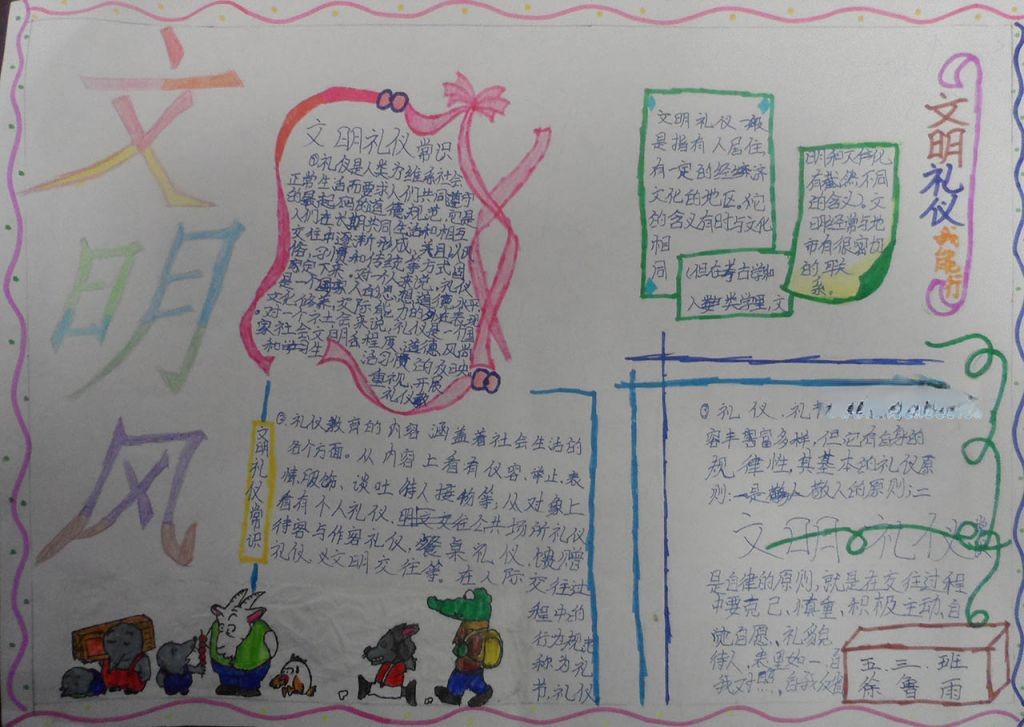 文
明
风
文明礼仪常识
①礼仪是人类为维系社会
正常生活而要求人们共同遵守
的最起码的道德规范,它是
人们在长期共同生活和相互
交往中逐渐形成,并且以风
俗、习惯和传统等方式固
定下来。对一个人来说,礼仪
是一个人的思想道德水平、
文化修养、交际能力的外在表现,
对一个社会来说,礼仪是一个国
家社会文明程度、道德风尚
和生活习惯的反映。
重视、开展
礼仪教
文明礼仪常识
②礼仪教育的内容涵盖着社会生活的
各个方面。从内容上看有仪容、举止、表
情、服饰、谈吐、待人接物等;从对象上
看有个人礼仪、公共场所礼仪
待客与作客礼仪、餐桌礼仪、馈赠
礼仪、文明交往等。在人际交往过
程中的
行为规范
称为礼
节,礼仪
文明礼仪一般
是指有人居住,
有一定的经济
文化的地区。它
的含义有时与文化
相
同
但在考古学和
人类学里,文
明和文化
有截然不同
的含义。文
明经常与城
市有很密切
的联
系。
文明礼仪
③礼仪、礼节
容丰富多样,但它有自身的
规律性,其基本的礼仪原
则:一是敬人的原则;二
文明礼仪常
是自律的原则,就是在交往过程
中要克己、慎重、积极主动、自
觉自愿、礼貌
待人、表里如一,自
我对照,自我反省
五.三.班
徐鲁雨